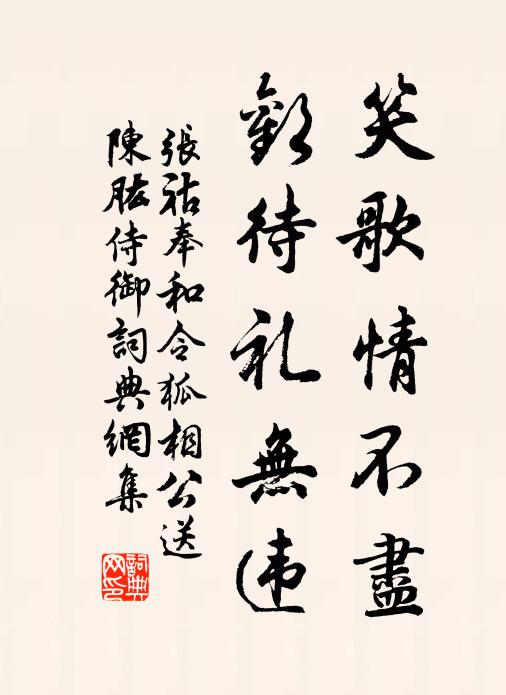 笑歌情不盡
歡待礼無违
張祜奉和令狐相公送
陳肱侍御詞典網集
詞典网印